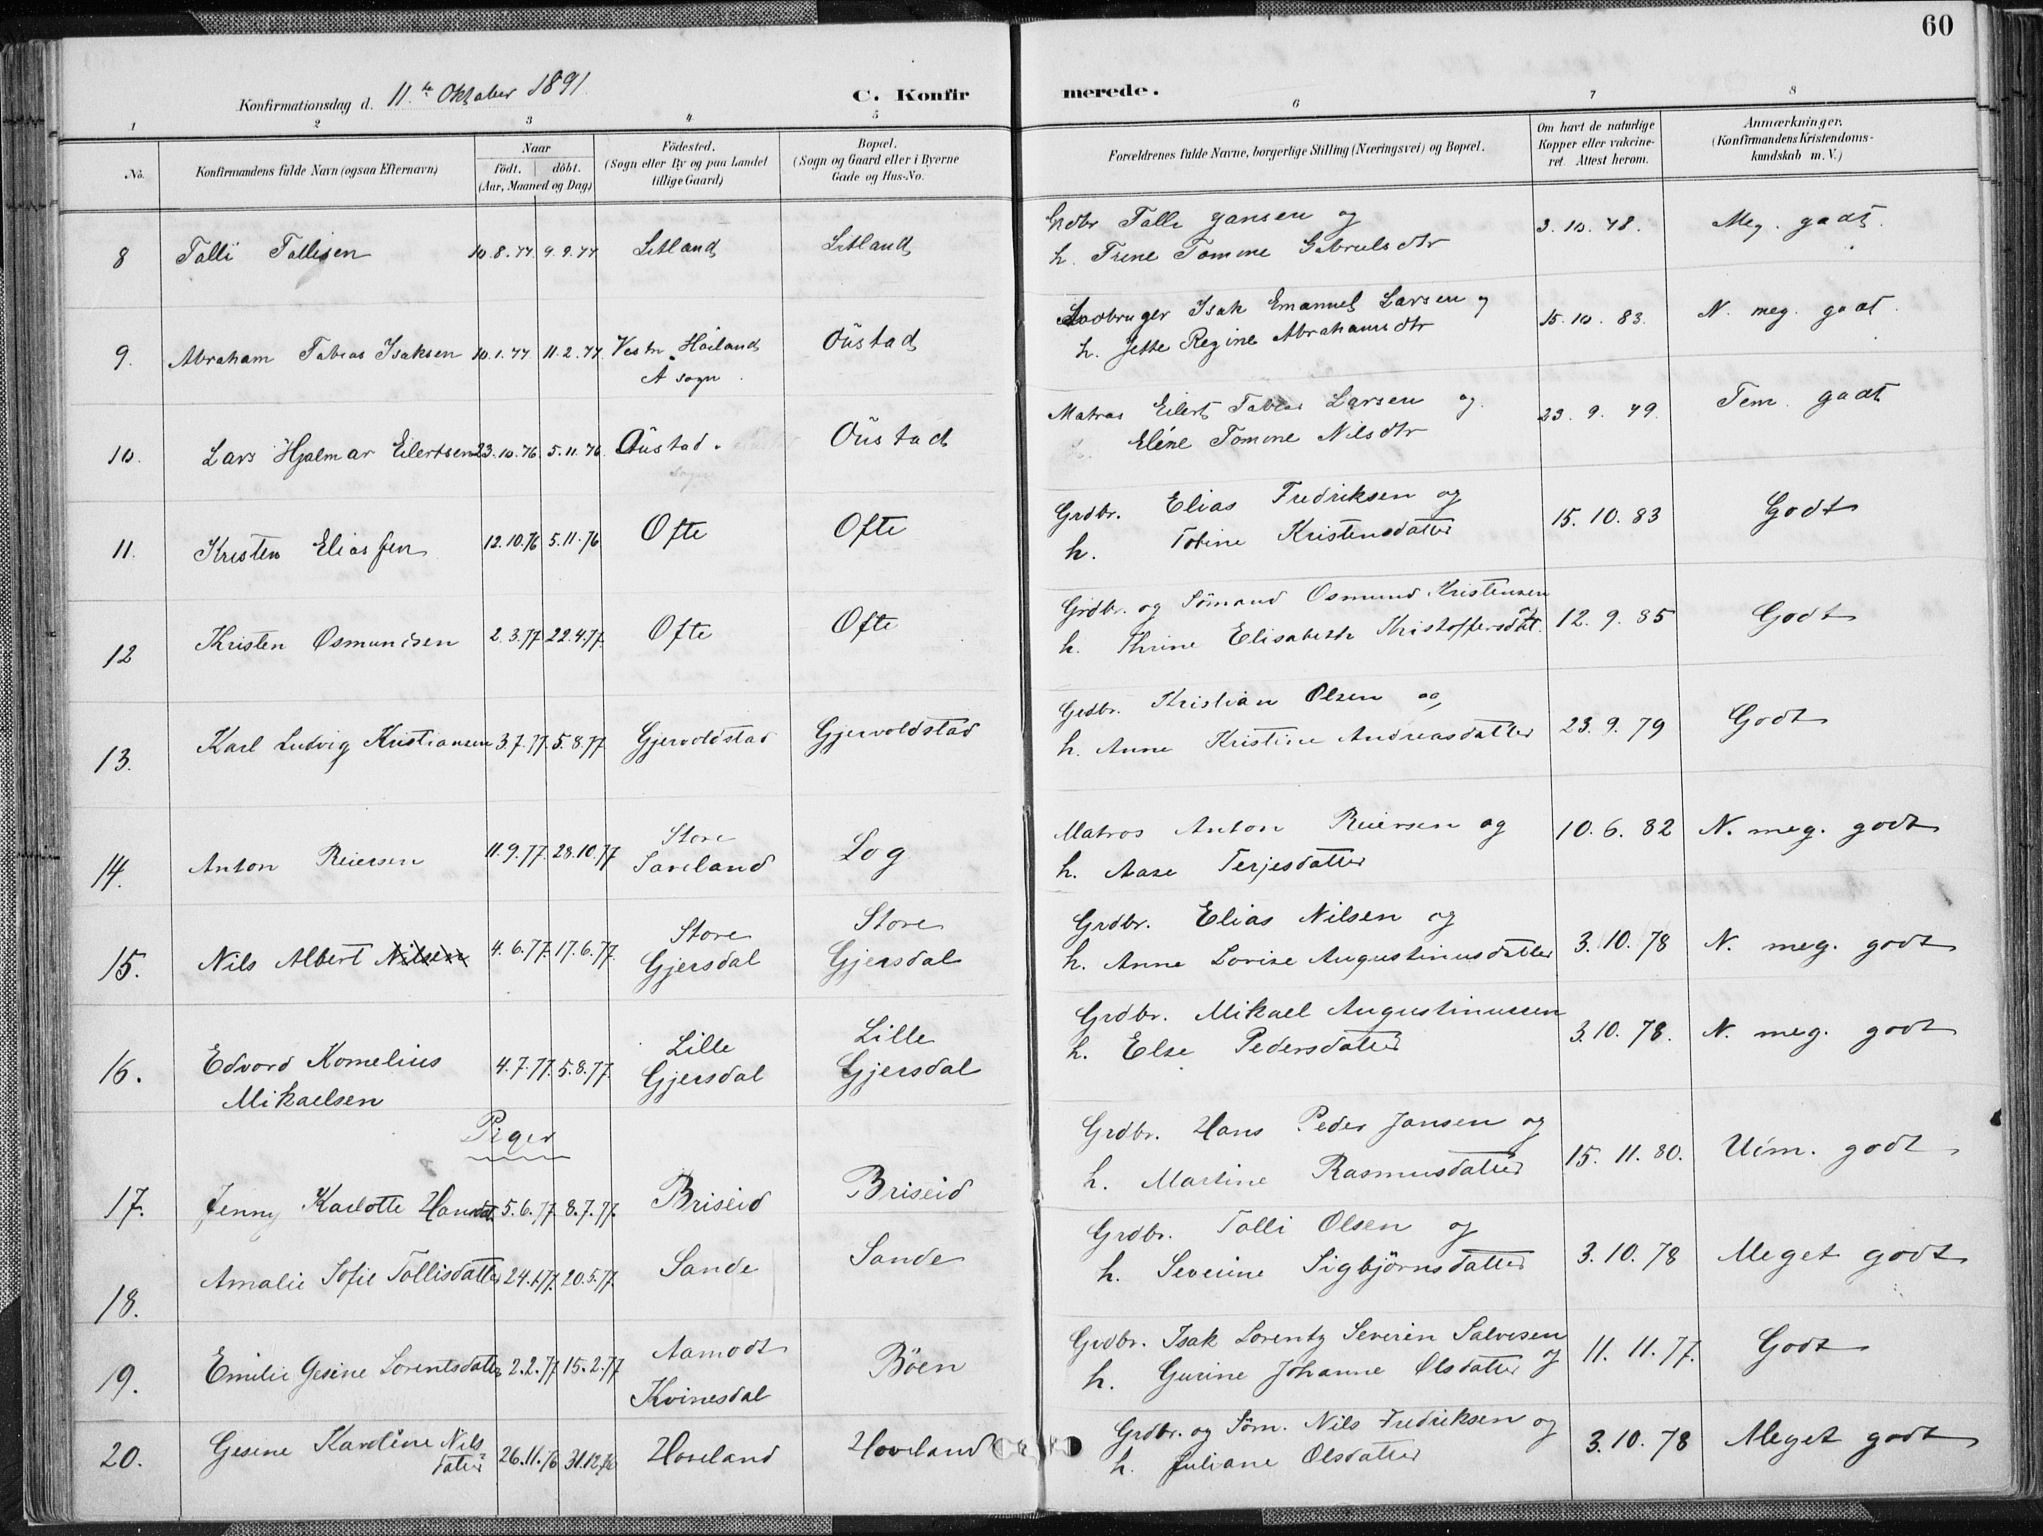 60
Konfirmationsdag d. 11.te Oktober 1891.
C. Konfirmerede.
1 2 3 4 5 6 7 8
No.
Konfirmandens fulde Navn (ogsaa Efternavn)
Naar
födt. döbt.
(Aar, Maaned og Dag)
Födested.
(Sogn eller By og paa Landet
tillige Gaard)
Bopæl.
(Sogn og Gaard eller i Byerne
Gade og Hus-No.
Forældrenes fulde Navne, borgerlige Stilling (Næringsvei) og Bopæl.
Om havt de naturlige
Kopper eller vakcine-
ret. Attest herom.
Anmærkninger.
(Konfirmandens Kristendoms-
kundskab m. V.)
8 Talli Tallisen 10.8.77. 9.9.77 Litland Litland Grdbr Talli Jansen og 3.10.78. Meg. godt.
h. Trine Tomine Gabrielsdtr
9. Abraham Tobias Isaksen 10.1.77 11.2.77. Vestr Höiland Öustad Isak Emanuel Larsen og 15.10.83. N. meg. godt.
A sogn h. Jette Regine Abrahamsdtr
10. Lars Hjalmar Eilertsen 23.10.76. 5.11.76 Öustad. Öustad Matros Eilert Tobias Larsen og 23.9.79. Tem. godt
Eléne Tomine Nilsdtr
11. Kristen Eliassen 12.10.76 5.11.76 Ofte Ofte Grdbr. Elias Fredriksen og 15.10.83 Godt
h. Tobine Kristensdatter
12 Kristen Osmundsen 2.3.77. 22.4.77. Ofte Ofte Grdbr. og Sömand Osmund Kristensen 12.9.85 Godt
h. Thrine Elisabeth Kristoffersdat.
13. Karl Ludvig Kristiansen 3.7.77. 5.8.77 Gjervoldstad Gjervoldstad Grdbr. Kristian Olsen og 23.9.79 Godt
h. Anne Kristine Andreasdatter
14. Anton Reiersen 11.9.77. 28.10.77 Store Saveland Log Matros Anton Reiersen og 10.6.82 N. meg. godt
h. Aase Terjesdatter
15. Nils Albert Nilsen 4.6.77. 17.6.77. Store Gjersdal Store Gjersdal Grdbr. Elias Nilsen og 3.10.78 N. meg. godt
h. Anne Lovise Augustinusdatter
16. Edvard Kornelius Mikaelsen 4.7.77. 5.8.77. Lille Gjersdal Lille Gjersdal Grdbr. Mikael Augustinussen 3.10.78. N. meg. godt
h. Else Pedersdatter
Piger
17. Jenny Karlotte Hansdat. 5.6.77. 8.7.77. Briseid Briseid Grdbr. Hans Peder Jansen og 15.11.80. Uem. godt
h. Martine Rasmusdatter
18. Amalie Sofie Tollisdatter 20.5.77. Sande Sande Grdbr. Tolli Olsen og 3.10.78 Meget godt
h. Severine Sigbjörnsdatter
19. Emilie Gesine Lorentsdatter 2.2.77 15.2.77 Aamodt Kvinesdal Böen Grdbr. Isak Lorentz Severin Salvesen 11.11.77. Godt
h. Gurine Johanne Olsdatter og
20. Gesine Karoline Nils-
datter 26.11.76 31.12.76 Hoveland Hoveland Grdbr. og Söm. Nils Fredriksen og 3.10.78 Meget godt
h. Juliane Olsdatter